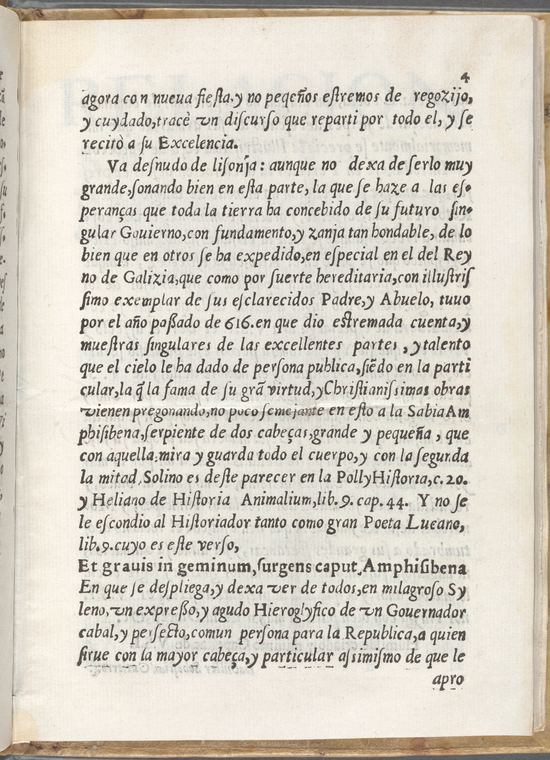 4
agora con nueva fiesta,y no peqeños estremos de regozijo,
y cuydado,tracè vn discurso que reparti por todo el, y se
recitò a su Excelencia.
Va desnudo de lisonja: aunque no dexa de serlo muy
grande,sonando bien en esta parte, la que se haze a las es-
peranças que toda la tierra ha concebido de su futuro sin-
gular Gouierno,con fundamento,y zanja tan hondable, de lo
bien que en otros se ha expedido,en especial en el del Rey
no de Galizia,que como por suerte hereditaria,con illustris
simo exemplar de sus esclarecidos Padre,y Abuelo, tuuo
por el año passado de 616.en que dio estremada cuenta,y
muestras singulares de las excellentes partes , y talento
que el cielo le ha dado de persona publica,siẽdo en la parti
cular,la q̃ la fama de su grã virtud,yChristianissimas obras
vienen pregonando,no poco semejante en esto a la SabiaAm
phisibena,serpiente de dos cabeças,grande y pequeña , que
con aquella,mira y guarda todo el cuerpo,y con la segunda
la mitad,Solino es deste parecer en la PollyHistoria,c.20.
y Heliano de Historia Animalium,lib.9. cap.44. Y no se
le escondio al Historiador tanto como gran Poeta Lucano,
lib.9.cuyo es este verso,
Et grauis in geminum,surgens caput Amphisibena
En que se despliega,y dexa ver de todos,en milagroso Sy
leno,vn expresso,y agudo Hieroglyfico de vn Gouernador
cabal,y perfecto,comun persona para la Republica,a quien
sirue con la mayor cabeça,y particular assimismo de que le
apro